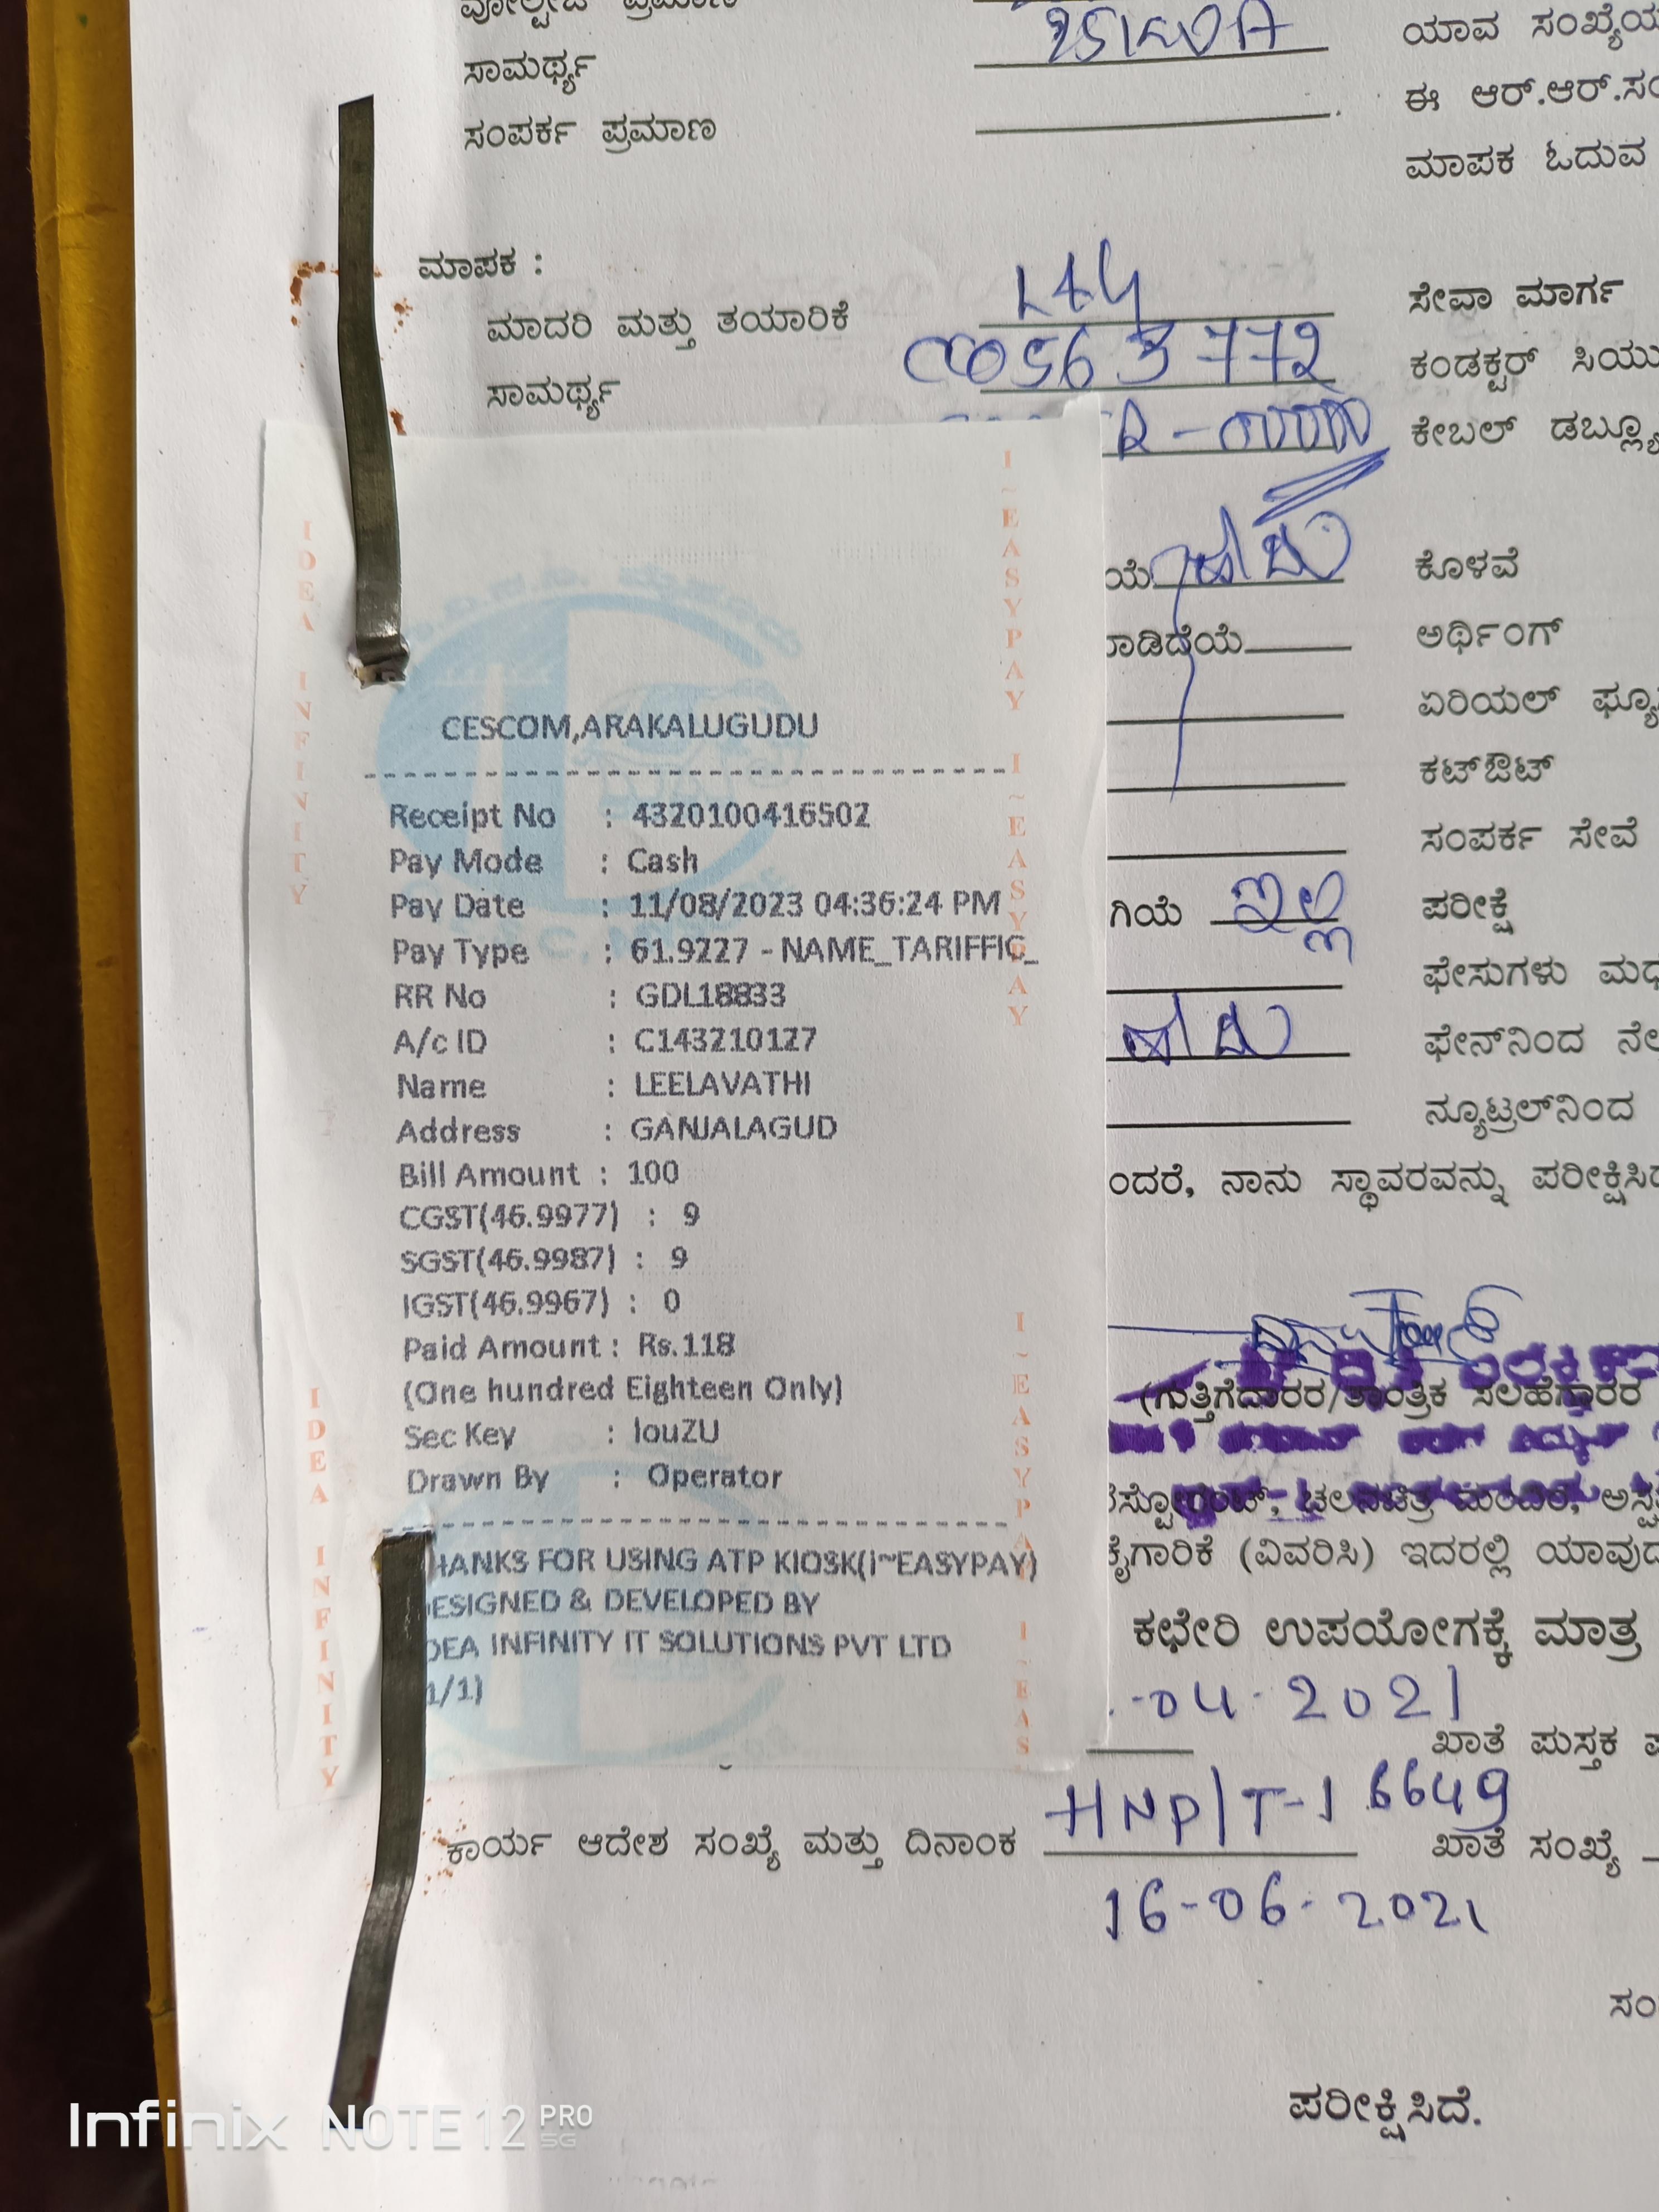 ಸಾಮರ್ಥ್ಯ 25KVA ಯಾವ
ಸಂಪರ್ಕ ಪ್ರಮಾಣ ಈ ಆರ್.ಆರ್.
ಮಾಪಕ ಓದುವ
ಮಾಪಕ :
ಮಾದರಿ ಮತ್ತು ತಯಾರಿಕೆ L&G ಸೇವಾ ಮಾರ್ಗ
ಸಾಮರ್ಥ್ಯ ಕಂಡಕ್ಟರ್
ಕೇಬಲ್
ಹೌದು ಕೊಳವೆ
ಅರ್ಥಿಂಗ್
ಏರಿಯಲ್
ಕಟ್‌ಔಟ್
ಸಂಪರ್ಕ ಸೇವೆ
ಇಲ್ಲ ಪರೀಕ್ಷೆ
ಫೇಸುಗಳು
ಹೌದು ಫೇನ್‌ನಿಂದ
ನ್ಯೂಟ್ರಲ್‌ನಿಂದ
ನಾನು ಸ್ಥಾವರವನ್ನು
CESCOM,ARAKALUGUDU
Receipt No : 4320100416502
Pay Mode : Cash
Pay Date : 11/08/2023 04:36:24 PM
Pay Type : 61.9227 - NAME_TARIFFIC_
RR No : GDL18833
A/c ID : C143210127
Name : LEELAVATHI
Address : GANJALAGUD
Bill Amount : 100
CGST(46.9977) : 9
SGST(46.9987) : 9
IGST(46.9967) : 0
Paid Amount : Rs.118
(One hundred Eighteen Only)
Sec Key : IouZU
Drawn By : Operator
HANKS FOR USING ATP KIOSK(I~EASYPAY)
ESIGNED & DEVELOPED BY
DEA INFINITY IT SOLUTIONS PVT LTD
1/1)
IDEA INFINITY
I~EASYPAY I~EASYPAY
IDEA INFINITY
I~EASYPAY I~EAS
(ಗುತ್ತಿಗೆದಾರರ/ತಾಂತ್ರಿಕ ಸಲಹೆಗಾರರ
ಚಲನಚಿತ್ರ ಮಂದಿರ,
(ವಿವರಿಸಿ) ಇದರಲ್ಲಿ
ಕಛೇರಿ ಉಪಯೋಗಕ್ಕೆ ಮಾತ್ರ
-04-2021
ಖಾತೆ ಪುಸ್ತಕ
ಕಾರ್ಯ ಆದೇಶ ಸಂಖ್ಯೆ ಮತ್ತು ದಿನಾಂಕ HNP/T-1 6649 ಖಾತೆ ಸಂಖ್ಯೆ
16-06-2021
ಪರೀಕ್ಷಿಸಿದೆ.
Infinix NOTE 12 PRO 5G